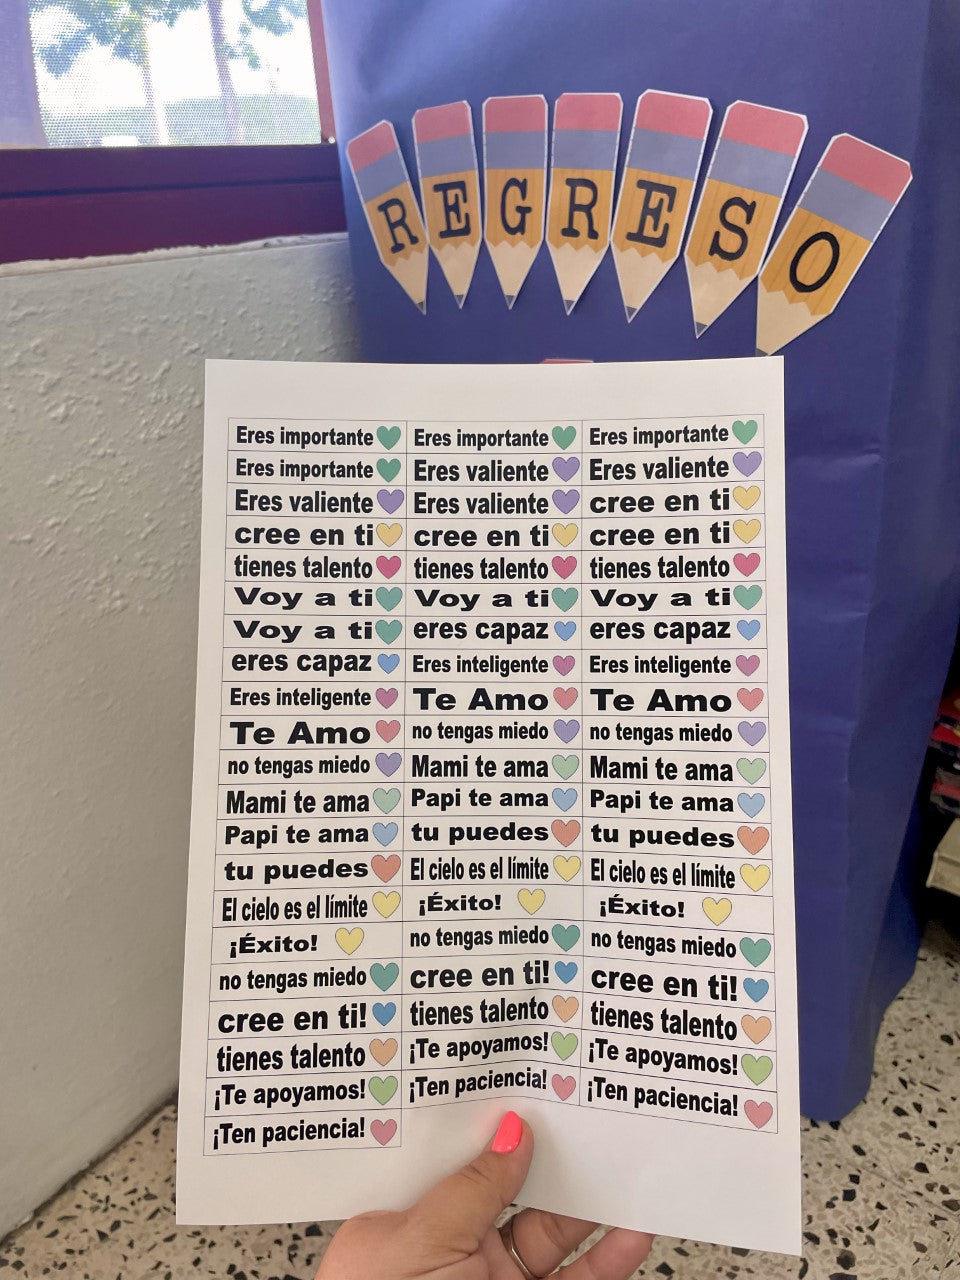 REGRESO
Eres importante Eres importante Eres importante
Eres importante Eres valiente Eres valiente
Eres valiente Eres valiente cree en ti
cree en ti cree en ti cree en ti
tienes talento tienes talento tienes talento
Voy a ti Voy a ti Voy a ti
Voy a ti eres capaz eres capaz
eres capaz Eres inteligente Eres inteligente
Eres inteligente Te Amo Te Amo
Te Amo no tengas miedo no tengas miedo
no tengas miedo Mami te ama Mami te ama
Mami te ama Papi te ama Papi te ama
Papi te ama tu puedes tu puedes
tu puedes El cielo es el límite El cielo es el límite
El cielo es el límite ¡Éxito! ¡Éxito!
¡Éxito! no tengas miedo no tengas miedo
no tengas miedo cree en ti! cree en ti!
cree en ti! tienes talento tienes talento
tienes talento ¡Te apoyamos! ¡Te apoyamos!
¡Te apoyamos! ¡Ten paciencia! ¡Ten paciencia!
¡Ten paciencia!